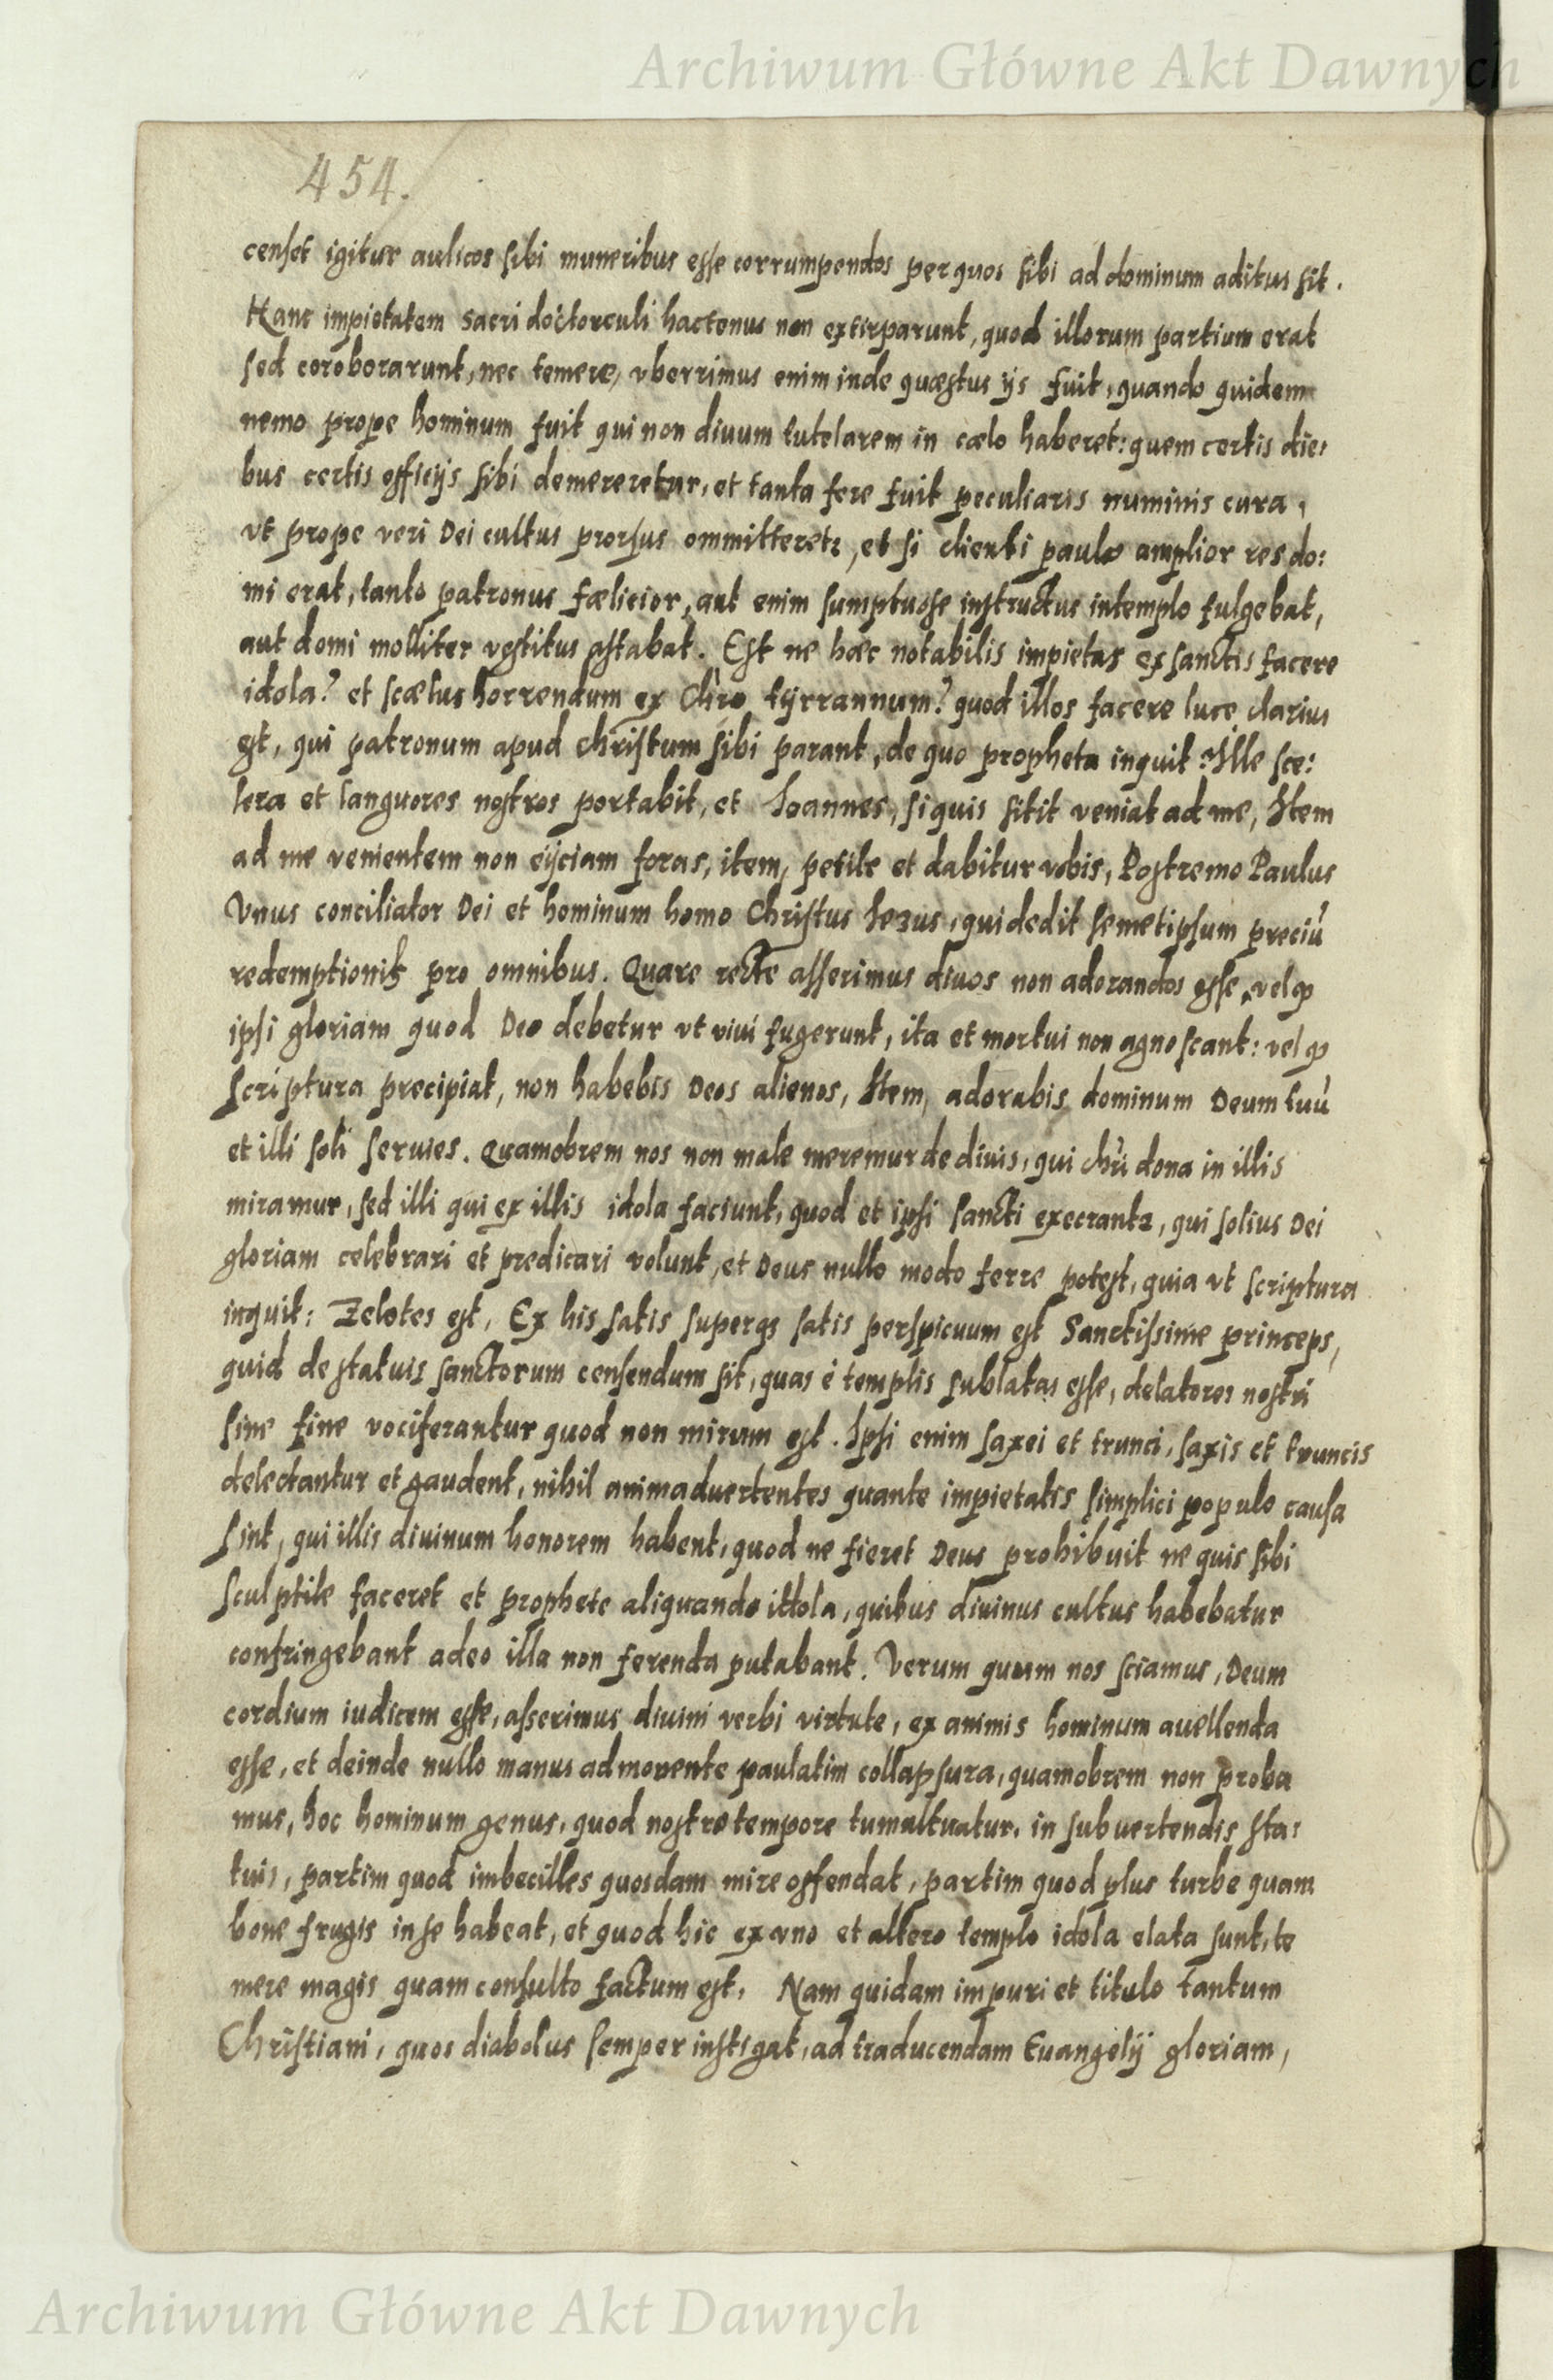 Archiwum Główne Akt Dawnych
454.
censet igitur aulicos sibi muneribus esse corrumpendos per quos sibi ad dominum aditus sit.
Hanc impietatem sacri doctorculi hactenus non extirparunt, quod illorum partium erat
sed coroborarunt, nec temere, vberrimus enim inde quæstus ijs fuit, quando quidem
nemo prope hominum fuit qui non diuum tutelarem in cælo haberet: quem certis die:
bus certis officijs sibi demereretur, et tanta fere fuit peculiaris numinis cura,
vt prope veri Dei cultus prorsus ommitteretr, et si clienti paulo amplior res do:
mi erat, tanto patronus fælicior, aut enim sumptuose instructus in templo fulgebat,
aut domi molliter vestitus astabat. Est ne hæc notabilis impietas ex sanctis facere
idola? et scælus horrendum ex Chro tyrrannum? quod illos facere luce clarius
est, qui patronum apud Christum sibi parant, de quo propheta inquit: Ille sce:
lera et languores nostros portabit, et Ioannes, si quis sitit veniat ad me, Item
ad me venientem non eijciam foras, item, petite et dabitur vobis, Postremo Paulus
Vnus conciliator Dei et hominum homo Christus Iezus, qui dedit semetipsum preciũ
redemptionis pro omnibus. Quare recte asserimus diuos non adorandos esse, vel qp
ipsi gloriam quod Deo debetur vt viui fugerunt, ita et mortui non agnoscant: vel qp
scriptura precipiat, non habebis Deos alienos, Item, adorabis dominum Deum tuũ
et illi soli seruies. Quamobrem nos non male meremur de diuis, qui chri dona in illis
miramur, sed illi qui ex illis idola faciunt, quod et ipsi sancti execrantr, qui solius Dei
gloriam celebrari et predicari volunt, et Deus nullo modo ferre potest, quia vt scriptura
inquit: Zelotes est, Ex his satis superqs satis perspicuum est Sanctissime princeps,
quid de statuis sanctorum censendum sit, quas è templis sublatas esse, delatores nostri
sine fine vociferantur quod non mirum est. Ipsi enim saxei et trunci, saxis et truncis
delectantur et gaudent, nihil animaduertentes quante impietatis simplici populo causa
sint, qui illis diuinum honorem habent, quod ne fieret Deus prohibuit ne quis sibi
sculptile faceret et prophete aliquando idola, quibus diuinus cultus habebatur
confringebant adeo illa non ferenda putabant. Verum quum nos sciamus, Deum
cordium iudicem esse, asserimus diuini verbi virtute, ex animis hominum auellenda
esse, et deinde nullo manus admouente paulatim collapsura, quamobrem non proba
mus, hoc hominum genus, quod nostro tempore tumultuatur, in subuertendis sta:
tuis, partim quod imbecilles quosdam mire offendat, partim quod plus turbe quam
bone frugis in se habeat, et quod hic ex vno et altero templo idola elata sunt, te
mere magis quam consulto factum est, Nam quidam impuri et titulo tantum
Christiani, quos diabolus semper instigat, ad traducendam Euangelij gloriam,
Archiwum Główne Akt Dawnych